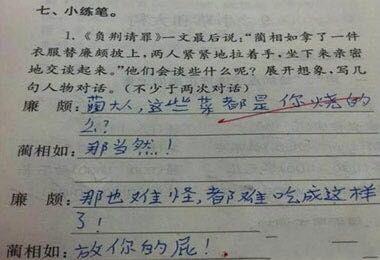 七、小练笔。
1.《负荆请罪》一文最后说:“蔺相如拿了一件
衣服替廉颇披上,两人紧紧地拉着手,坐下来亲密
地交谈起来。”他们会谈些什么呢?展开想象,写几
句人物对话。(不少于两次对话)
廉 颇:蔺大人,这些菜都是你烧的
么?
蔺相如:那当然!
廉 颇:那也难怪,都难吃成这样
了!
蔺相如:放你的屁!